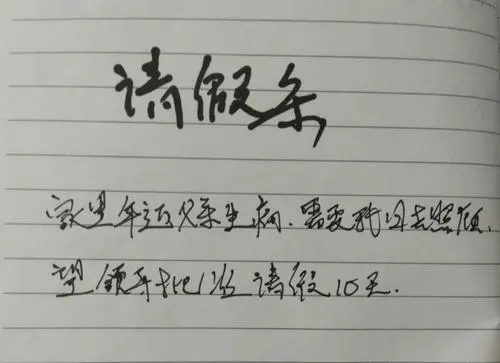 请假条
家里年迈父亲生病.需要我回去照顾.
望领导批准请假10天.